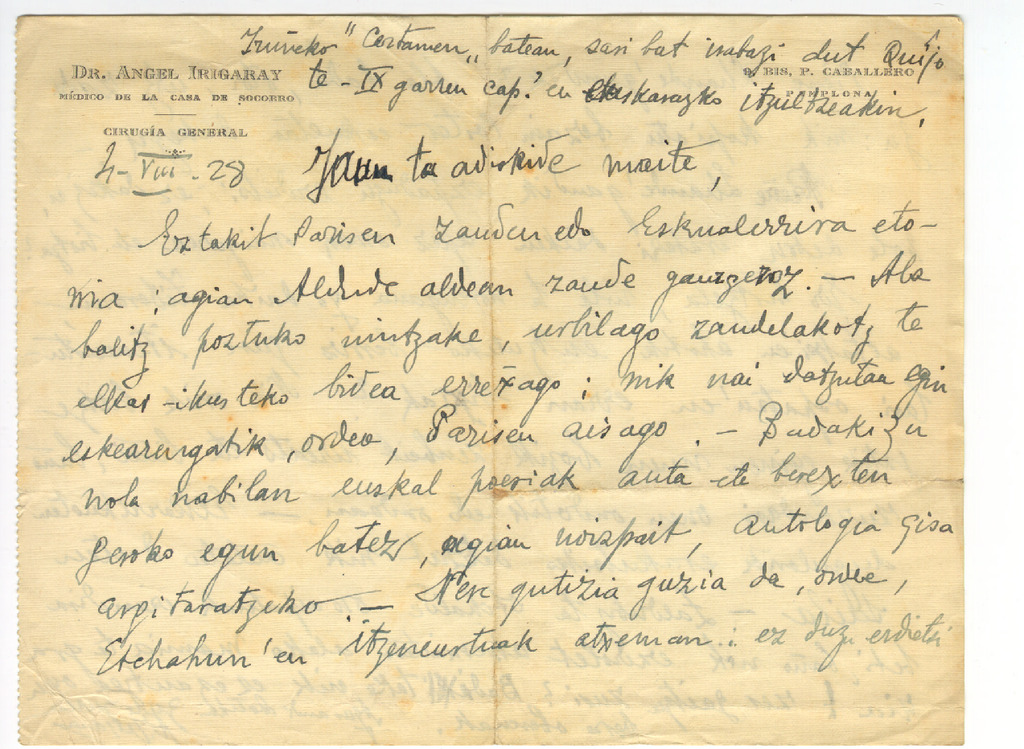 Iruñeko "Certamen" batean, sari bat irabazi dut Quijo
te-IX garren cap.' en euskarazko itzultzeakin.
DR. ANGEL IRIGARAY
MÉDICO DE LA CASA DE SOCORRO
CIRUGÍA GENERAL
9, BIS, P. CABALLERO
PAMPLONA
4-VIII-28
Jaun ta adiskide maite,
Eztakit Parisen zauden edo Eskualerrira eto-
rria; agian Aldude aldean zaude gaurgeroz. — Ala
balitz poztuko nintzake, urbilago zaudelakotz te
elkar-ikusteko bidea errexago; nik nai datzutan egin
eskearengatik, ordea, Parisen aisago. — Badakizu
nola nabilan euskal poesiak auta eta berexten
geroko egun batez, agian noizpait, antologia gisa
argitaratzeko — Nere gutizia guzia da, ordea,
Etchahun'en itzneurtuak atxeman: ez duzu erdietsi